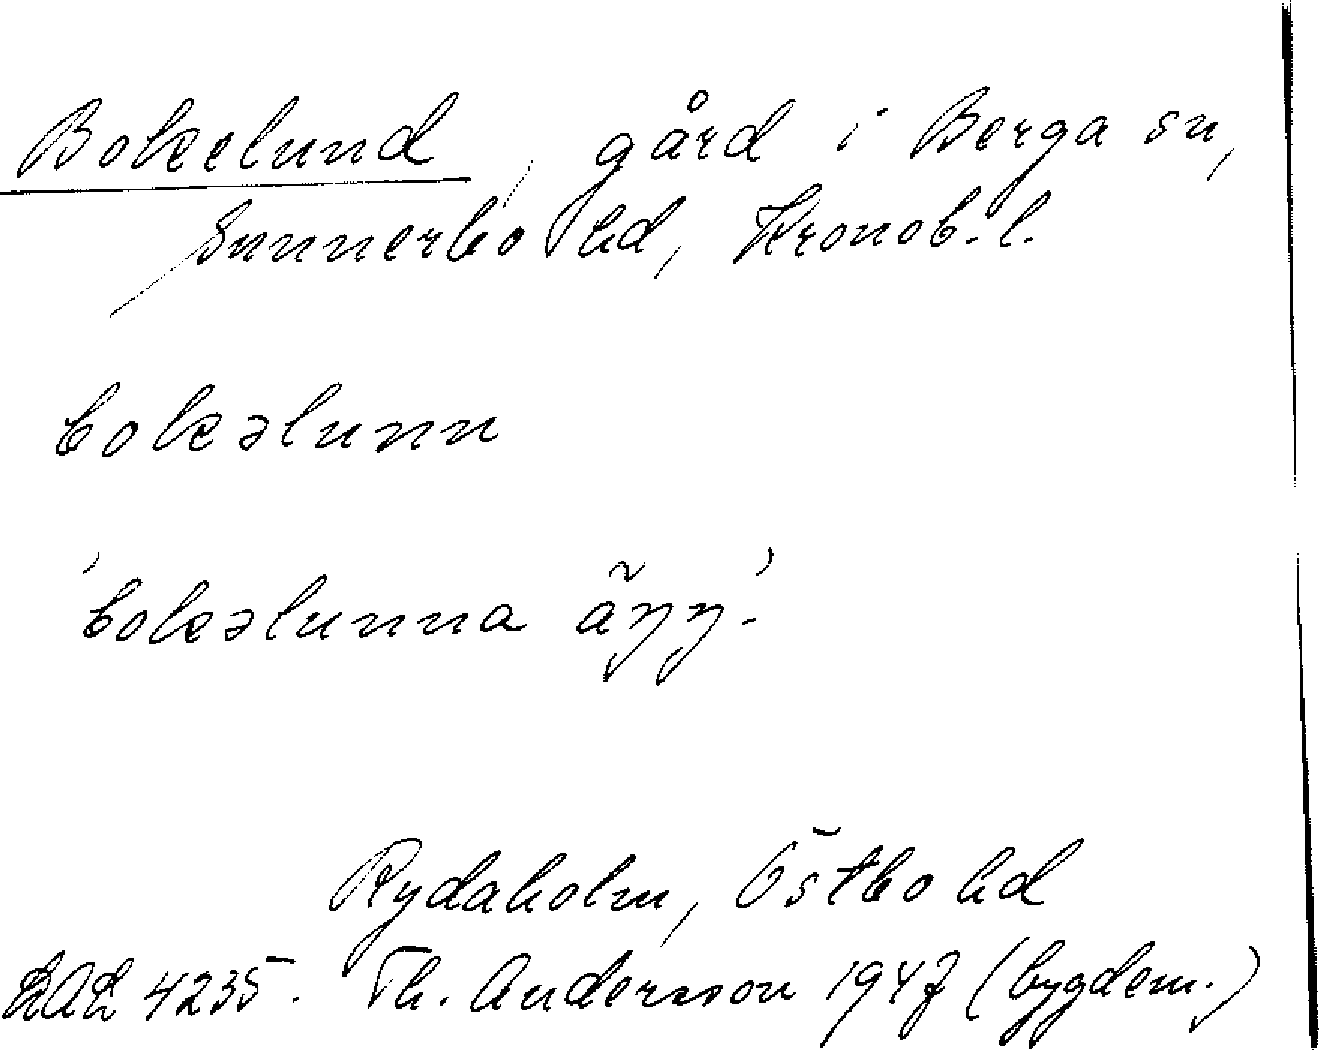 Bokelund, gård i Berga sn,
Sunnerbo hd, Kronob. l.
bokəlunn
'bokəlunna äŋŋ.'
Rydaholm, Östbo hd
LAL 4235. Th. Andersson 1947 (bygdem.)